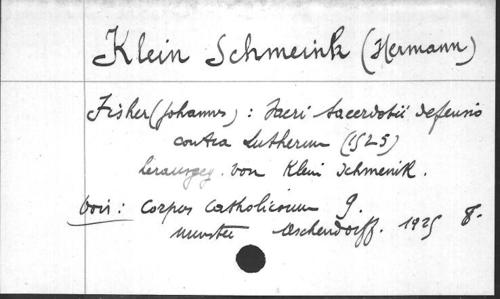 Klein Schmeink (Hermann)
Fisher (Johannes) : Sacri sacerdotii defensio
contra Lutherum (1525)
herausgeg. von Klein Schmeink.
Voir : Corpus catholicorum 9.
Munster Aschendorff. 1925 8.